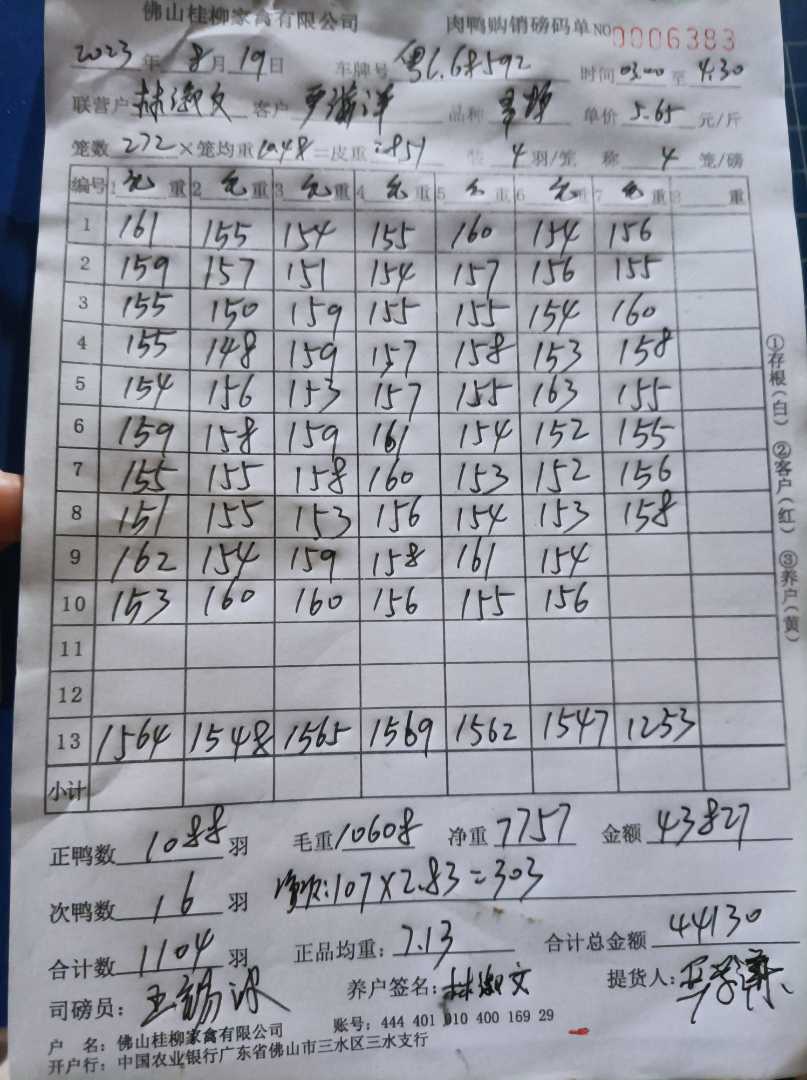 佛山桂柳家禽有限公司 肉鸭购销磅码单 NO 0006383
2023年 8月 19日 车牌号 粤L.68592 时间 03:00 至 4:30
联营户 林淑文 客户 品种 单价 5.65 元/斤
笼数 272 × 笼均重 10.48 = 皮重 2851 装 4 羽/笼 称 4 笼/磅
编号 1 毛重 2 毛重 3 毛重 4 毛重 5 毛重 6 毛重 7 毛重 8 重
1 161 155 154 155 160 154 156
2 159 157 151 154 157 156 155
3 155 150 159 155 155 154 160
4 155 148 159 157 158 153 158
5 154 156 153 157 155 163 155
6 159 158 159 161 154 152 155
7 155 155 158 160 153 152 156
8 151 155 153 156 154 153 158
9 162 154 159 158 161 154
10 153 160 160 156 155 156
11
12
13 1564 1548 1565 1569 1562 1547 1253
小计
正鸭数 1088 羽 毛重 10608 净重 7757 金额 43827
次鸭数 16 羽 :107×2.83=303
合计数 1104 羽 正品均重: 7.13 合计总金额 44130
司磅员: 王锡冰 养户签名: 林淑文 提货人:
户 名: 佛山桂柳家禽有限公司 账号: 444 401 010 400 169 29
开户行: 中国农业银行广东省佛山市三水区三水支行
①存根(白) ②客户(红) ③养户(黄)